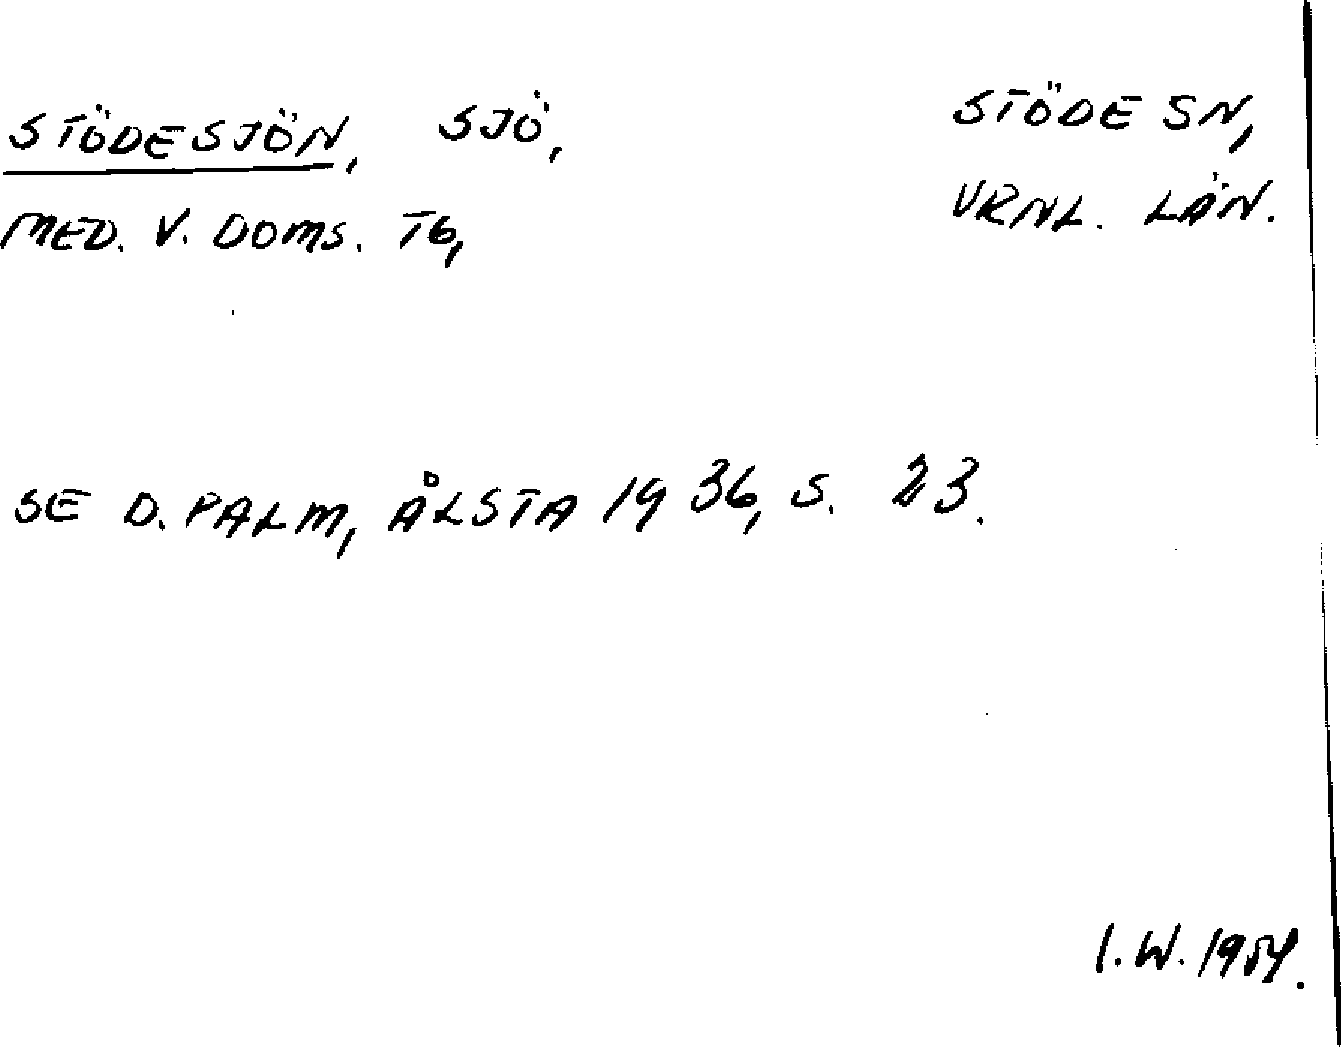 STÖDESJÖN, SJÖ,
MED. V. DOMS. TG,
STÖDE SN,
VRNL. LÄN.
SE D. PALM, ÅLSTA 1936, S. 23.
I.W. 1954.